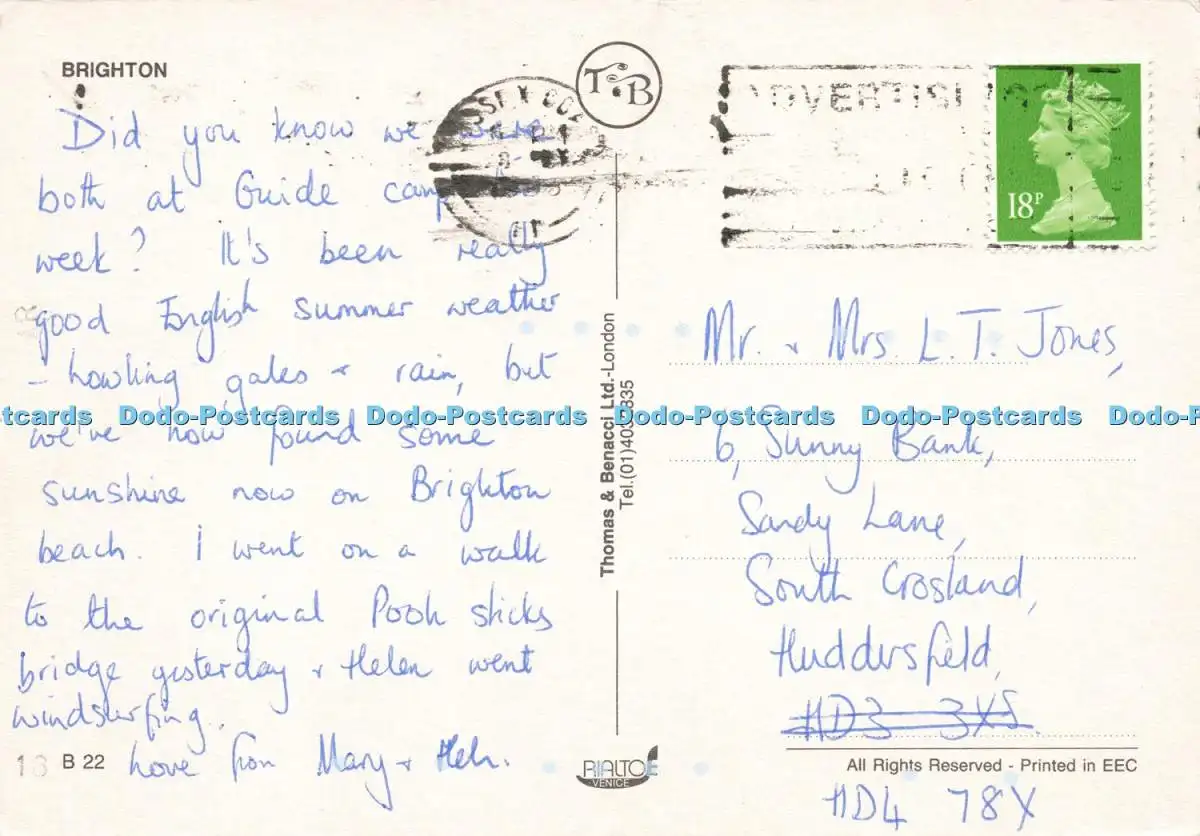 BRIGHTON
Did you know we were
both at Guide camp this
week? It's been really
good English summer weather
- howling gales + rain, but
we've now found some
sunshine now on Brighton
beach. I went on a walk
to the original Pooh sticks
bridge yesterday + Helen went
windsurfing.
Love from Mary + Helen.
B 22
T B
Thomas & Benacci Ltd.-London
RIALTO
VENICE
ADVERTISI
18P
Mr. + Mrs. L. T. Jones,
6, Sunny Bank,
Sandy Lane,
South Crosland,
Huddersfield,
HD3 3XS.
All Rights Reserved - Printed in EEC
HD4 78X
Dodo-Postcards Dodo-Postcards Dodo-Postcards Dodo-Postcards